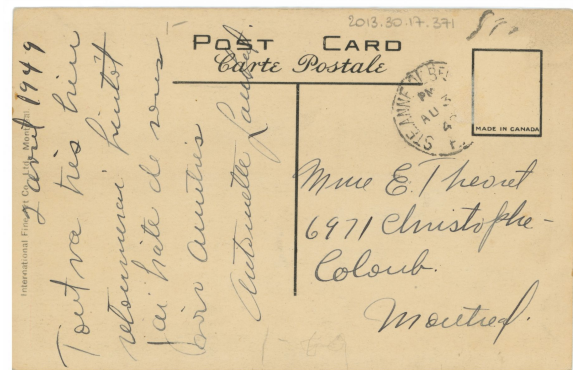 2013.30.17.371
POST CARD
Carte Postale
MADE IN CANADA
STE ANNE DE BE
PM
AU 3
4
P.
International Fine Art Co., Ltd., Montreal
2 avril 1949
Tout va très bien
retournerai bientôt
j'ai hâte de vous
voir amitiés
Antoinette
Mme E. Theoret
6971 Christophe-
Colomb.
Montreal.